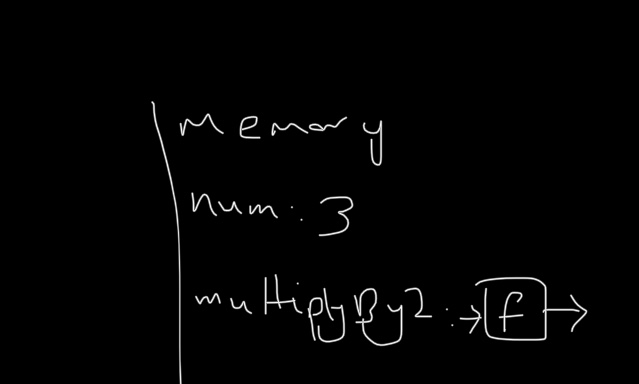 memory
num: 3
multiplyBy2: →[f]→